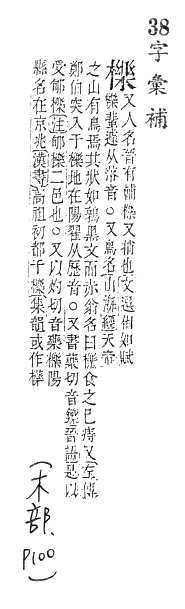 38字彙補
櫟 又人名晉有輔櫟又捎也文選徂如賦
櫟輩道从落音○又鳥名山海經天帝
之山有鳥焉其狀如鶉黑文而赤翁名曰櫟食之已痔又左傳
鄭伯突入于櫟地在陽翟从歷音○又書藥切音鑠晉語是以
受郇櫟註郇櫟二邑也○又以灼切音藥櫟陽
縣名在京兆漢書高祖初都于櫟集韻或作檪
(木部、
P100)